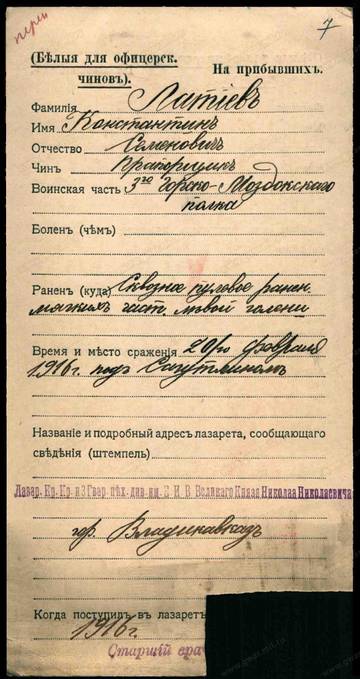 7
(Бѣлыя для офицерск.
чиновъ).
На прибывшихъ.
Фамилія Латіевъ
Имя Константинъ
Отчество Семеновичъ
Чинъ Прапорщикъ
Воинская часть 3го Горско-Моздокскаго
полка
Боленъ (чѣмъ)
Раненъ (куда) Сквозное пулевое ранен.
мягкихъ част. лѣвой голени
Время и мѣсто сраженія 20го февраля
1916г. подъ
Названіе и подробный адресъ лазарета, сообщающаго
свѣдѣнія (штемпель)
Лазар. Кр. Кр. и 3 Гвар. пѣх. див. им. Е. И. В. Великаго Князя Николая Николаевича
гор. Владикавказъ
Когда поступилъ въ лазаретъ
1916г.
Старшій вра